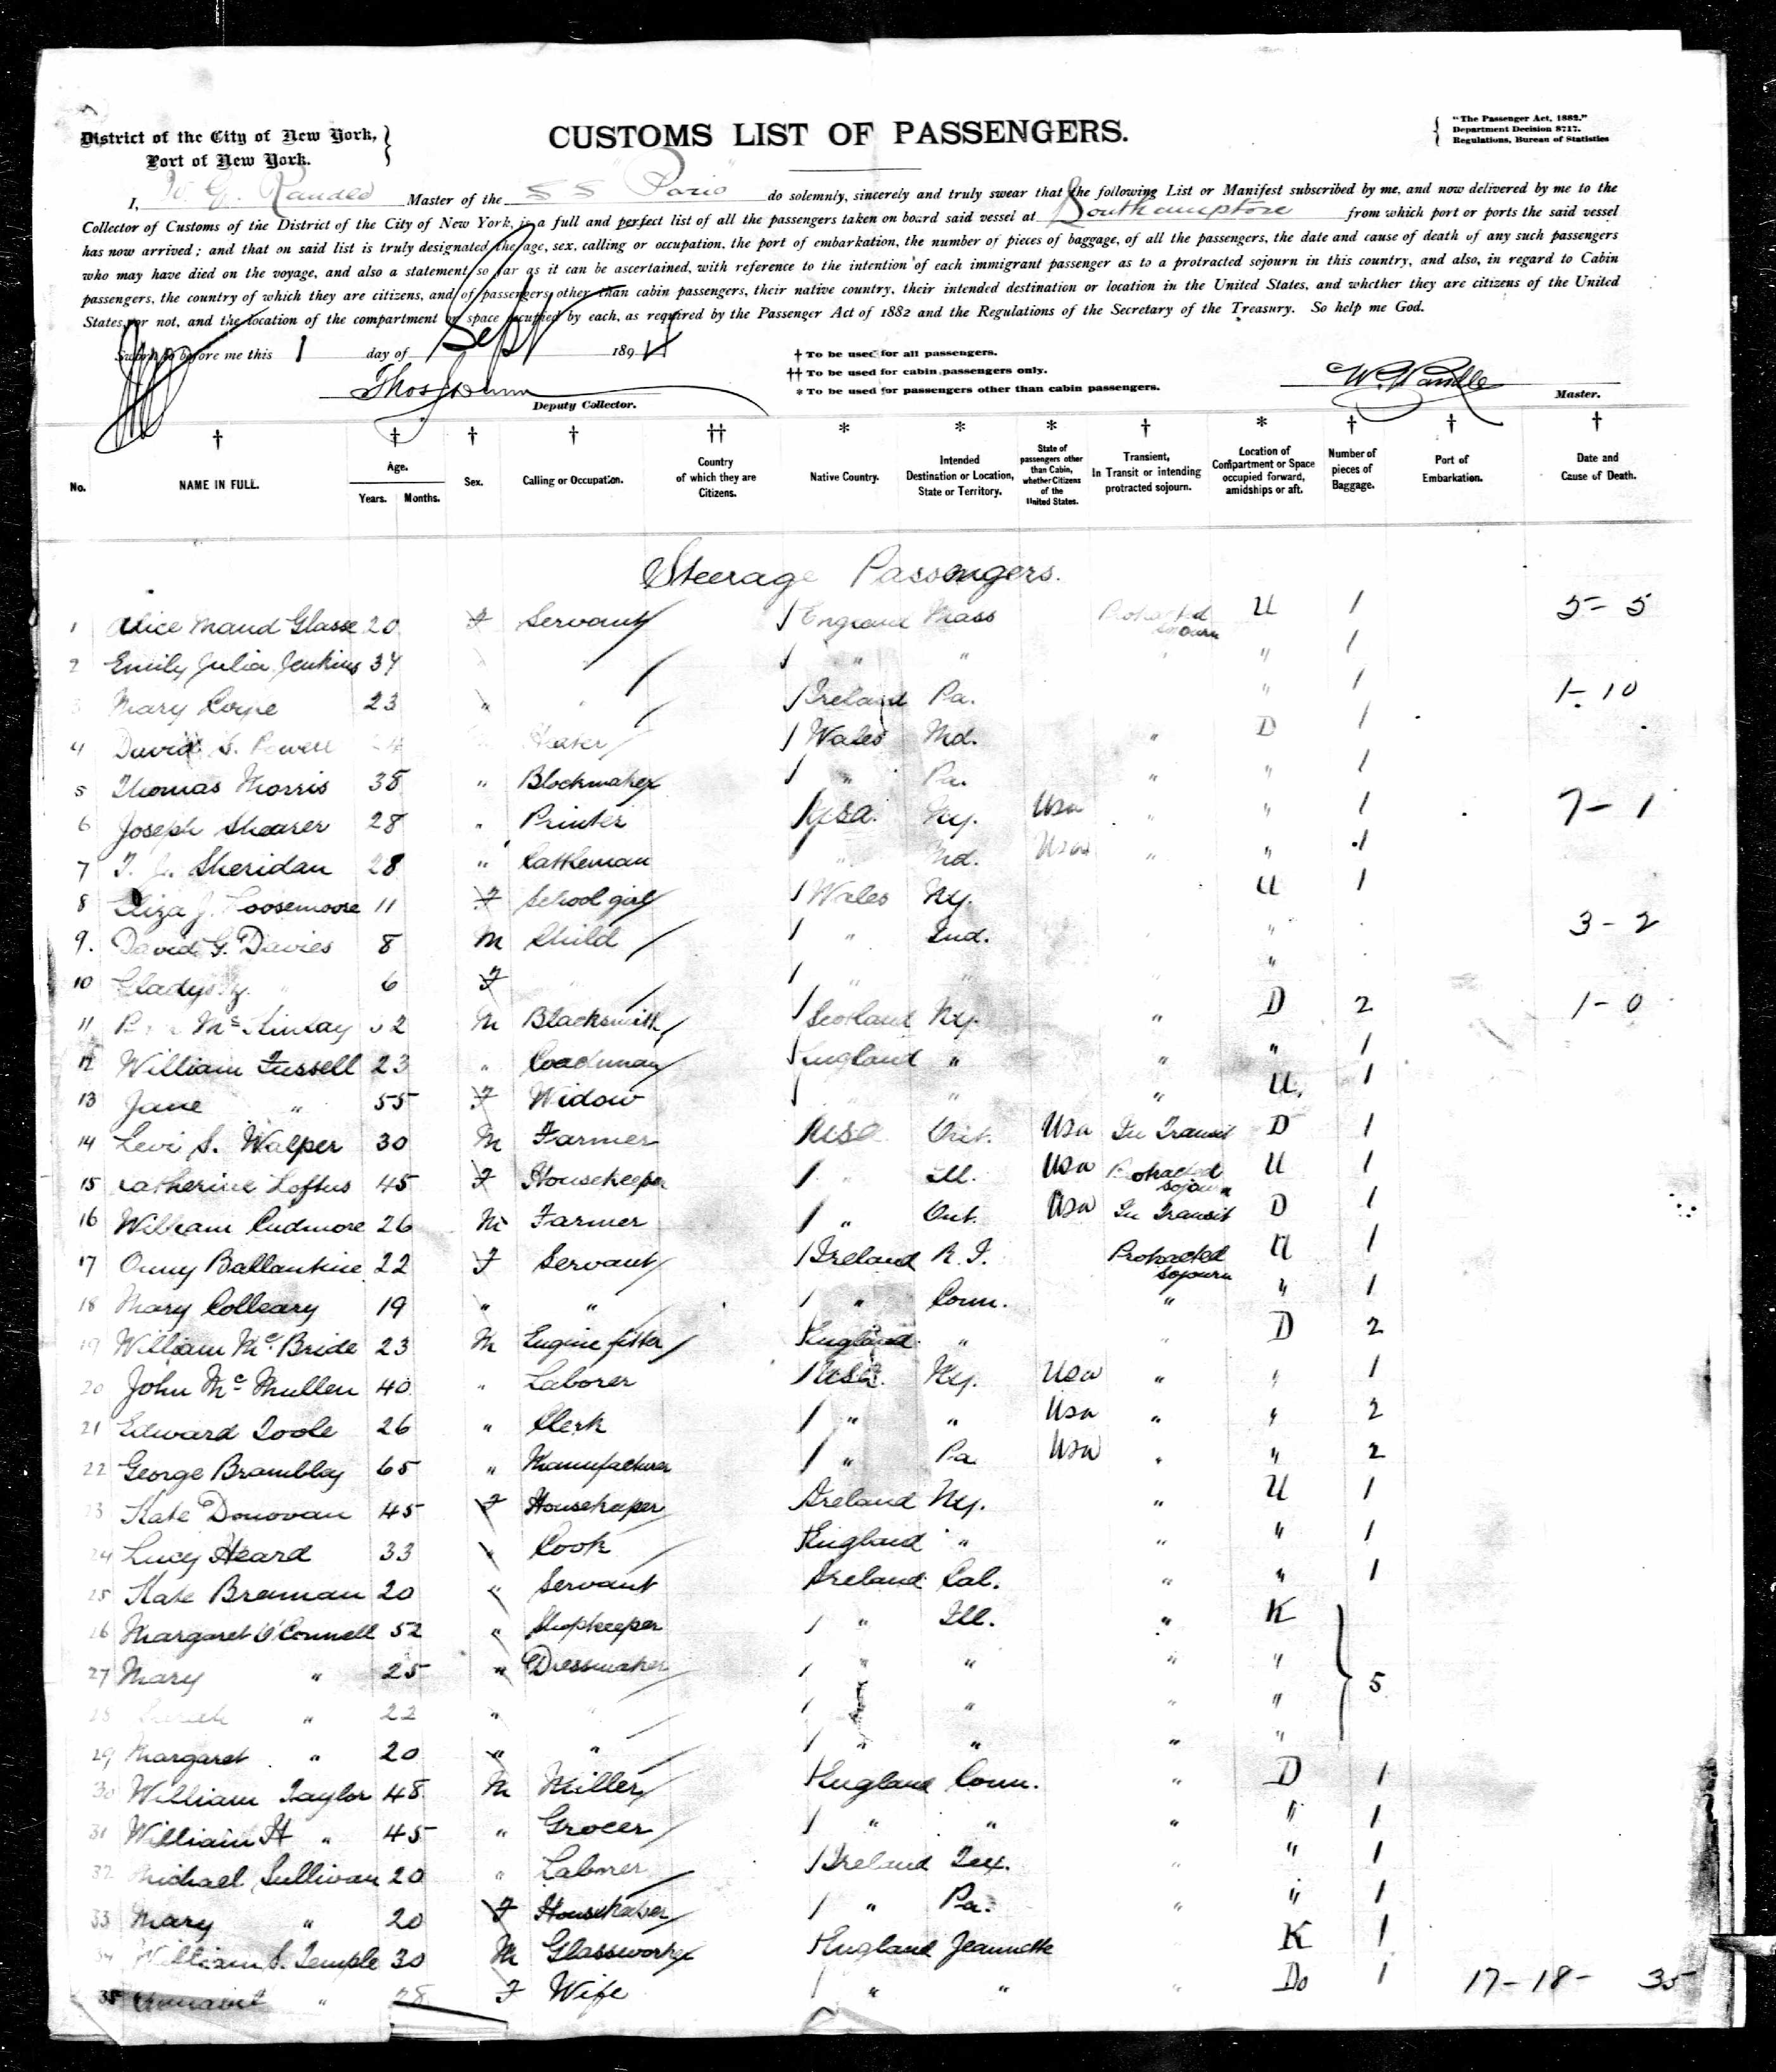 District of the City of New York,
Port of New York.
CUSTOMS LIST OF PASSENGERS.
"The Passenger Act, 1882."
Department Decision 8717.
Regulations, Bureau of Statistics
I, Master of the S S Paris do solemnly, sincerely and truly swear that the following List or Manifest subscribed by me, and now delivered by me to the
Collector of Customs of the District of the City of New York, is a full and perfect list of all the passengers taken on board said vessel at Southampton from which port or ports the said vessel
has now arrived; and that on said list is truly designated the age, sex, calling or occupation, the port of embarkation, the number of pieces of baggage, of all the passengers, the date and cause of death of any such passengers
who may have died on the voyage, and also a statement so far as it can be ascertained, with reference to the intention of each immigrant passenger as to a protracted sojourn in this country, and also, in regard to Cabin
passengers, the country of which they are citizens, and of passengers other than cabin passengers, their native country, their intended destination or location in the United States, and whether they are citizens of the United
States or not, and the location of the compartment or space occupied by each, as required by the Passenger Act of 1882 and the Regulations of the Secretary of the Treasury. So help me God.
Sworn to before me this 1 day of Sept 1894
† To be used for all passengers.
†† To be used for cabin passengers only.
* To be used for passengers other than cabin passengers.
Deputy Collector.
Master.
† † † † †† * * * † * † † †
No. NAME IN FULL. Age. Years. Months. Sex. Calling or Occupation. Country of which they are Citizens. Native Country. Intended Destination or Location, State or Territory. State of passengers other than Cabin, whether Citizens of the United States. Transient, In Transit or intending protracted sojourn. Location of Compartment or Space occupied forward, amidships or aft. Number of pieces of Baggage. Port of Embarkation. Date and Cause of Death.
Steerage Passengers.
1 Alice Maud Glasse 20 F Servant England Mass Protracted sojourn U 1 5-5
2 Emily Julia Jenkins 34 " " " " 1
3 Mary 23 " " Ireland Pa. " 1 1-10
4 David S. Powell Wales Md. " D 1
5 Thomas Morris 38 " Blockmaker " Pa. " " 1
6 Joseph Shearer 28 " Printer USA. Ny. Usa " " 1 7-1
7 Sheridan 28 " Cattleman " Md. Usa " " 1
8 Eliza J. Loosemoore 11 F School girl Wales Ny. U 1
9. David G. Davies 8 M Child " Ind. " 3-2
10 Gladys " 6 F " " " "
11 McKinlay M Blacksmith Scotland Ny. " D 2 1-0
12 William Fussell 23 " Coachman England " " " 1
13 Jane " 55 F Widow " " " U. 1
14 Levi S. Walper 30 M Farmer USA Ont. Usa In Transit D 1
15 Catherine Loftus 45 F Housekeeper " Ill. Usa Protracted sojourn U 1
16 William Cudmore 26 M Farmer " Ont. Usa In Transit D 1
17 Anny Ballantine 22 F Servant Ireland R.I. Protracted sojourn U 1
18 Mary Colleary 19 " " " Conn. " " 1
19 William McBride 23 M Engine fitter England " " D 2
20 John McMullen 40 " Laborer USA. Ny. Usa " " 1
21 Edward Toole 26 " Clerk " " Usa " " 2
22 George Brambley 65 " Manufacturer " Pa Usa " " 2
23 Kate Donovan 45 F Housekeeper Ireland Ny. " U 1
24 Lucy Heard 33 " Cook England " " " 1
25 Kate Brennan 20 " Servant Ireland Cal. " " 1
26 Margaret O'Connell 52 " Shopkeeper " Ill. " K
27 Mary " 25 " Dressmaker " " " " 5
28 " 22 " " " " "
29 Margaret " 20 " " " " " "
30 William Taylor 48 M Miller England Conn. " D 1
31 William H " 45 " Grocer " " " " 1
32 Michael Sullivan 20 " Laborer Ireland Tex. " " 1
33 Mary " 20 F Housekeeper " Pa. " " 1
34 William S. Temple 30 M Glassworker England Jeannette K 1
35 " 28 F Wife " " " Do 1 17-18- 35